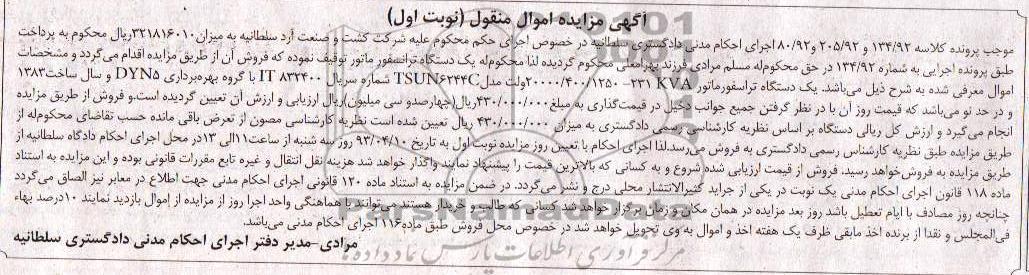 آگهی مزایده اموال منقول (نوبت اول)
موجب پرونده کلاسه ۱۳۴/۹۲ و ۲۰۵/۹۲ و ۸۰/۹۲ اجرای احکام مدنی دادگستری سلطانیه در خصوص اجرای حکم محکوم علیه شرکت کشت و صنعت آرد سلطانیه به میزان ۳۲۱۸۱۶۰۱۰ریال محکوم به پرداخت
طبق پرونده اجرایی به شماره ۱۳۴/۹۲ در حق محکوم‌له مسلم مرادی فرزند بهرامعلی محکوم گردیده لذا محکوم‌له یک دستگاه ترانسفور ماتور توقیف نموده که فروش آن از طریق مزایده اقدام می‌گردد و مشخصات
اموال معرفی شده به شرح ذیل می‌باشد. یک دستگاه تراسفورماتور ۲۰۰۰۰/۴۰۰/۱۲۵۰-۲۳۱ KVA ولت مدل TSUN۶۲۴۴C شماره سریال IT ۸۳۲۴۰۰ با گروه بهره‌برداری DYN۵ و سال ساخت ۱۳۸۳
و در حد نو می‌باشد که قیمت روز آن با در نظر گرفتن جمیع جوانب دخیل در قیمت‌گذاری به مبلغ ۴۳۰/۰۰۰/۰۰۰ریال(چهارصدو سی میلیون)ریال ارزیابی و ارزش آن تعیین گردیده است.و فروش از طریق مزایده
انجام می‌گیرد و ارزش کل ریالی دستگاه بر اساس نظریه کارشناسی رسمی دادگستری به میزان ۴۳۰/۰۰۰/۰۰۰ ریال تعیین شده است نظریه کارشناسی مصون از تعرض باقی مانده حسب تقاضای محکوم‌له از
طریق مزایده طبق نظریه کارشناس رسمی دادگستری به فروش می‌رسد.لذا اجرای احکام با تعیین روز مزایده نوبت اول به تاریخ ۹۳/۰۴/۱۰ روز سه شنبه از ساعت۱۱الی ۱۳در محل اجرای احکام دادگاه سلطانیه از
طریق مزایده به فروش‌خواهد رسید. فروش از قیمت ارزیابی شده شروع و به کسانی که بالاترین قیمت را پیشنهاد نمایند واگذار خواهد شد هزینه نقل انتقال و غیره تابع مقررات قانونی بوده و این مزایده به استناد
ماده ۱۱۸ قانون اجرای احکام مدنی یک نوبت در یکی از جراید کثیرالانتشار محلی درج و نشر می‌گردد. در ضمن مزایده به استناد ماده ۱۲۰ قانونی اجرای احکام مدنی جهت اطلاع در معابر نیز الصاق می‌گردد
چنانچه روز مصادف با ایام تعطیل باشد روز بعد مزایده در همان مکان و زمان برگزار خواهد شد کسانی که طالب و خریدار هستند می‌توانند با هماهنگی واحد اجرا روز از مزایده از اموال بازدید نمایند ۱۰درصد بهاء
فی‌المجلس و نقدا از برنده اخذ مابقی ظرف یک هفته اخذ و اموال به وی تحویل خواهد شد در خصوص محل فروش طبق ماده۱۱۶ اجرای احکام مدنی می‌باشد.
مرادی-مدیر دفتر اجرای احکام مدنی دادگستری سلطانیه
ParsNamadData
مرکز فرآوری اطلاعات پارس نماد داده‌ها